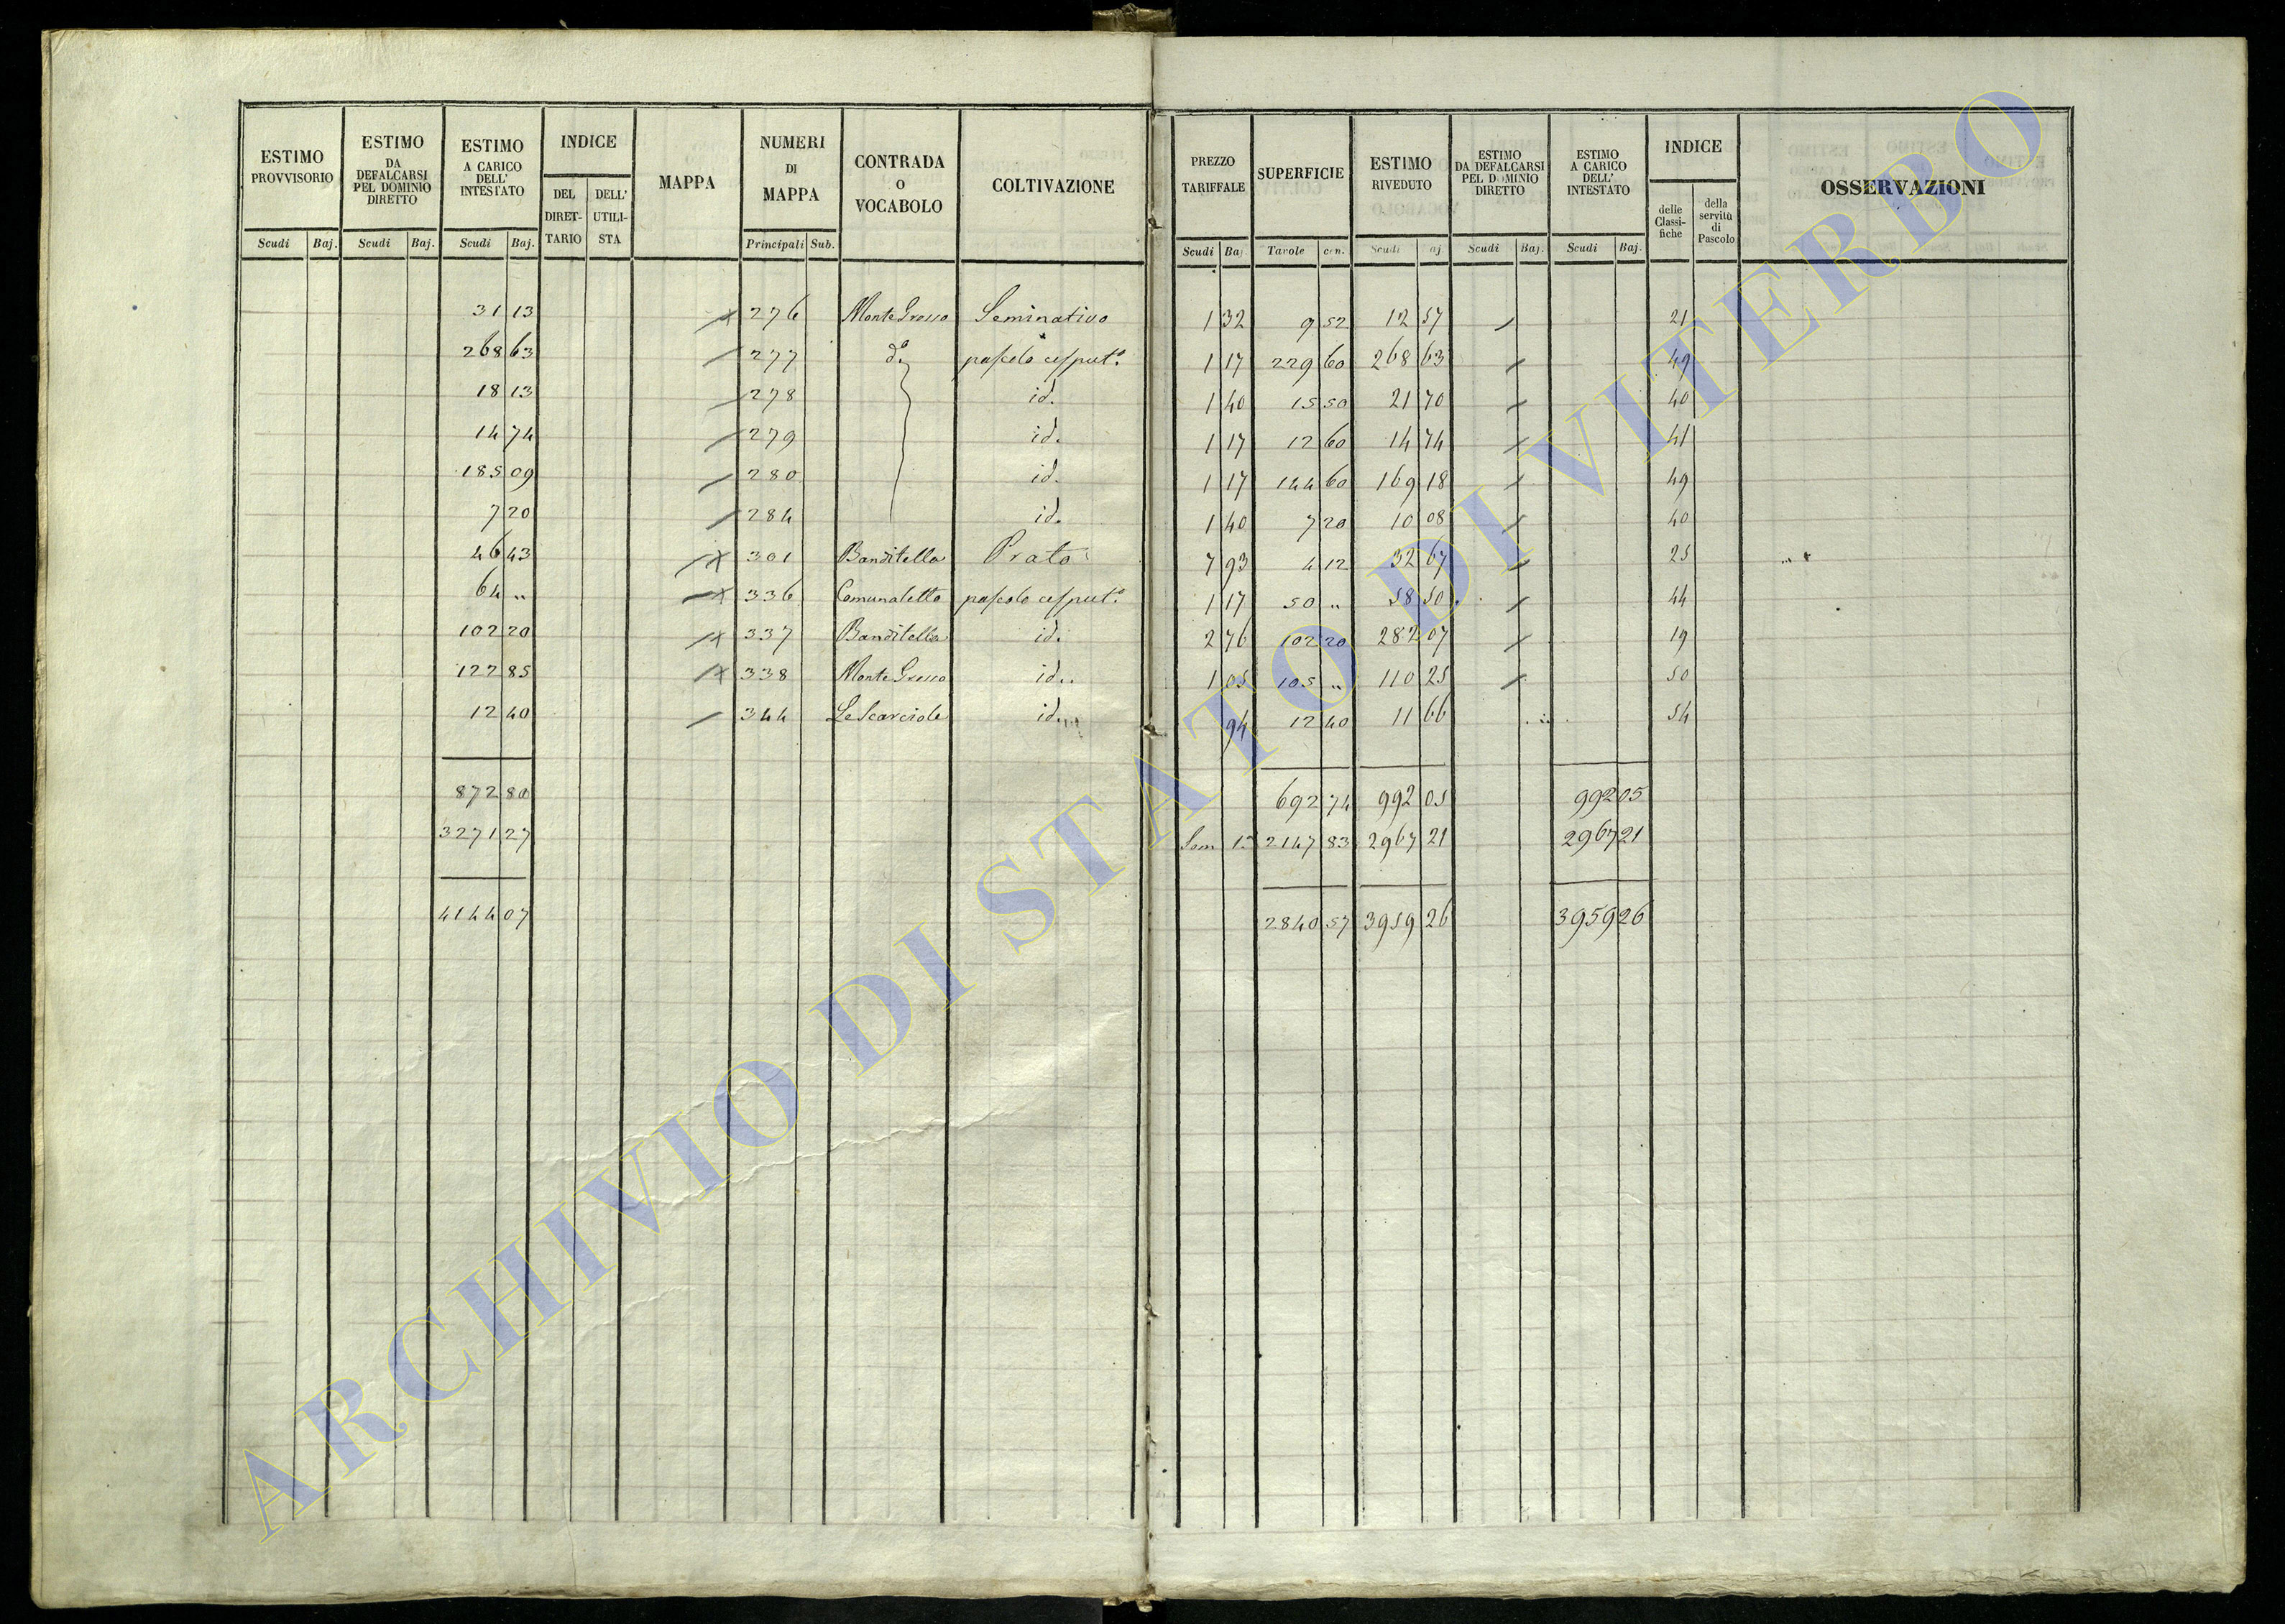 ESTIMO PROVVISORIO Scudi Baj.
ESTIMO DA DEFALCARSI PEL DOMINIO DIRETTO Scudi Baj.
ESTIMO A CARICO DELL' INTESTATO Scudi Baj.
INDICE DEL DIRETTARIO DELL' UTILISTA
MAPPA
NUMERI DI MAPPA Principali Sub.
CONTRADA O VOCABOLO
COLTIVAZIONE
PREZZO TARIFFALE Scudi Baj.
SUPERFICIE Tavole cen.
ESTIMO RIVEDUTO Scudi Baj.
ESTIMO DA DEFALCARSI PEL DOMINIO DIRETTO Scudi Baj.
ESTIMO A CARICO DELL' INTESTATO Scudi Baj.
INDICE delle Classifiche della servitù di Pascolo
OSSERVAZIONI
31 13 276 Monte Grosso Seminativo 1 32 9 52 12 57 21
268 63 277 d.º pascolo cesput.º 1 17 229 60 268 63 49
18 13 278 id. 1 40 15 50 21 70 40
14 74 279 id. 1 17 12 60 14 74 41
185 09 280 id. 1 17 144 60 169 18 49
7 20 284 id. 1 40 7 20 10 08 40
46 43 301 Banditella Prato 7 93 4 12 32 67 25
64 „ 336 Comunaletto pascolo cesput.º 1 17 50 „ 58 50 44
102 20 337 Banditella id. 2 76 102 20 282 07 19
122 85 338 Monte Grosso id. 1 05 105 „ 110 25 50
12 40 344 Le Scarciole id. 94 12 40 11 66 54
872 80 692 74 992 05 992 05
3271 27 Som 2147 83 2967 21 2967 21
4144 07 2840 57 3959 26 3959 26
ARCHIVIO DI STATO DI VITERBO